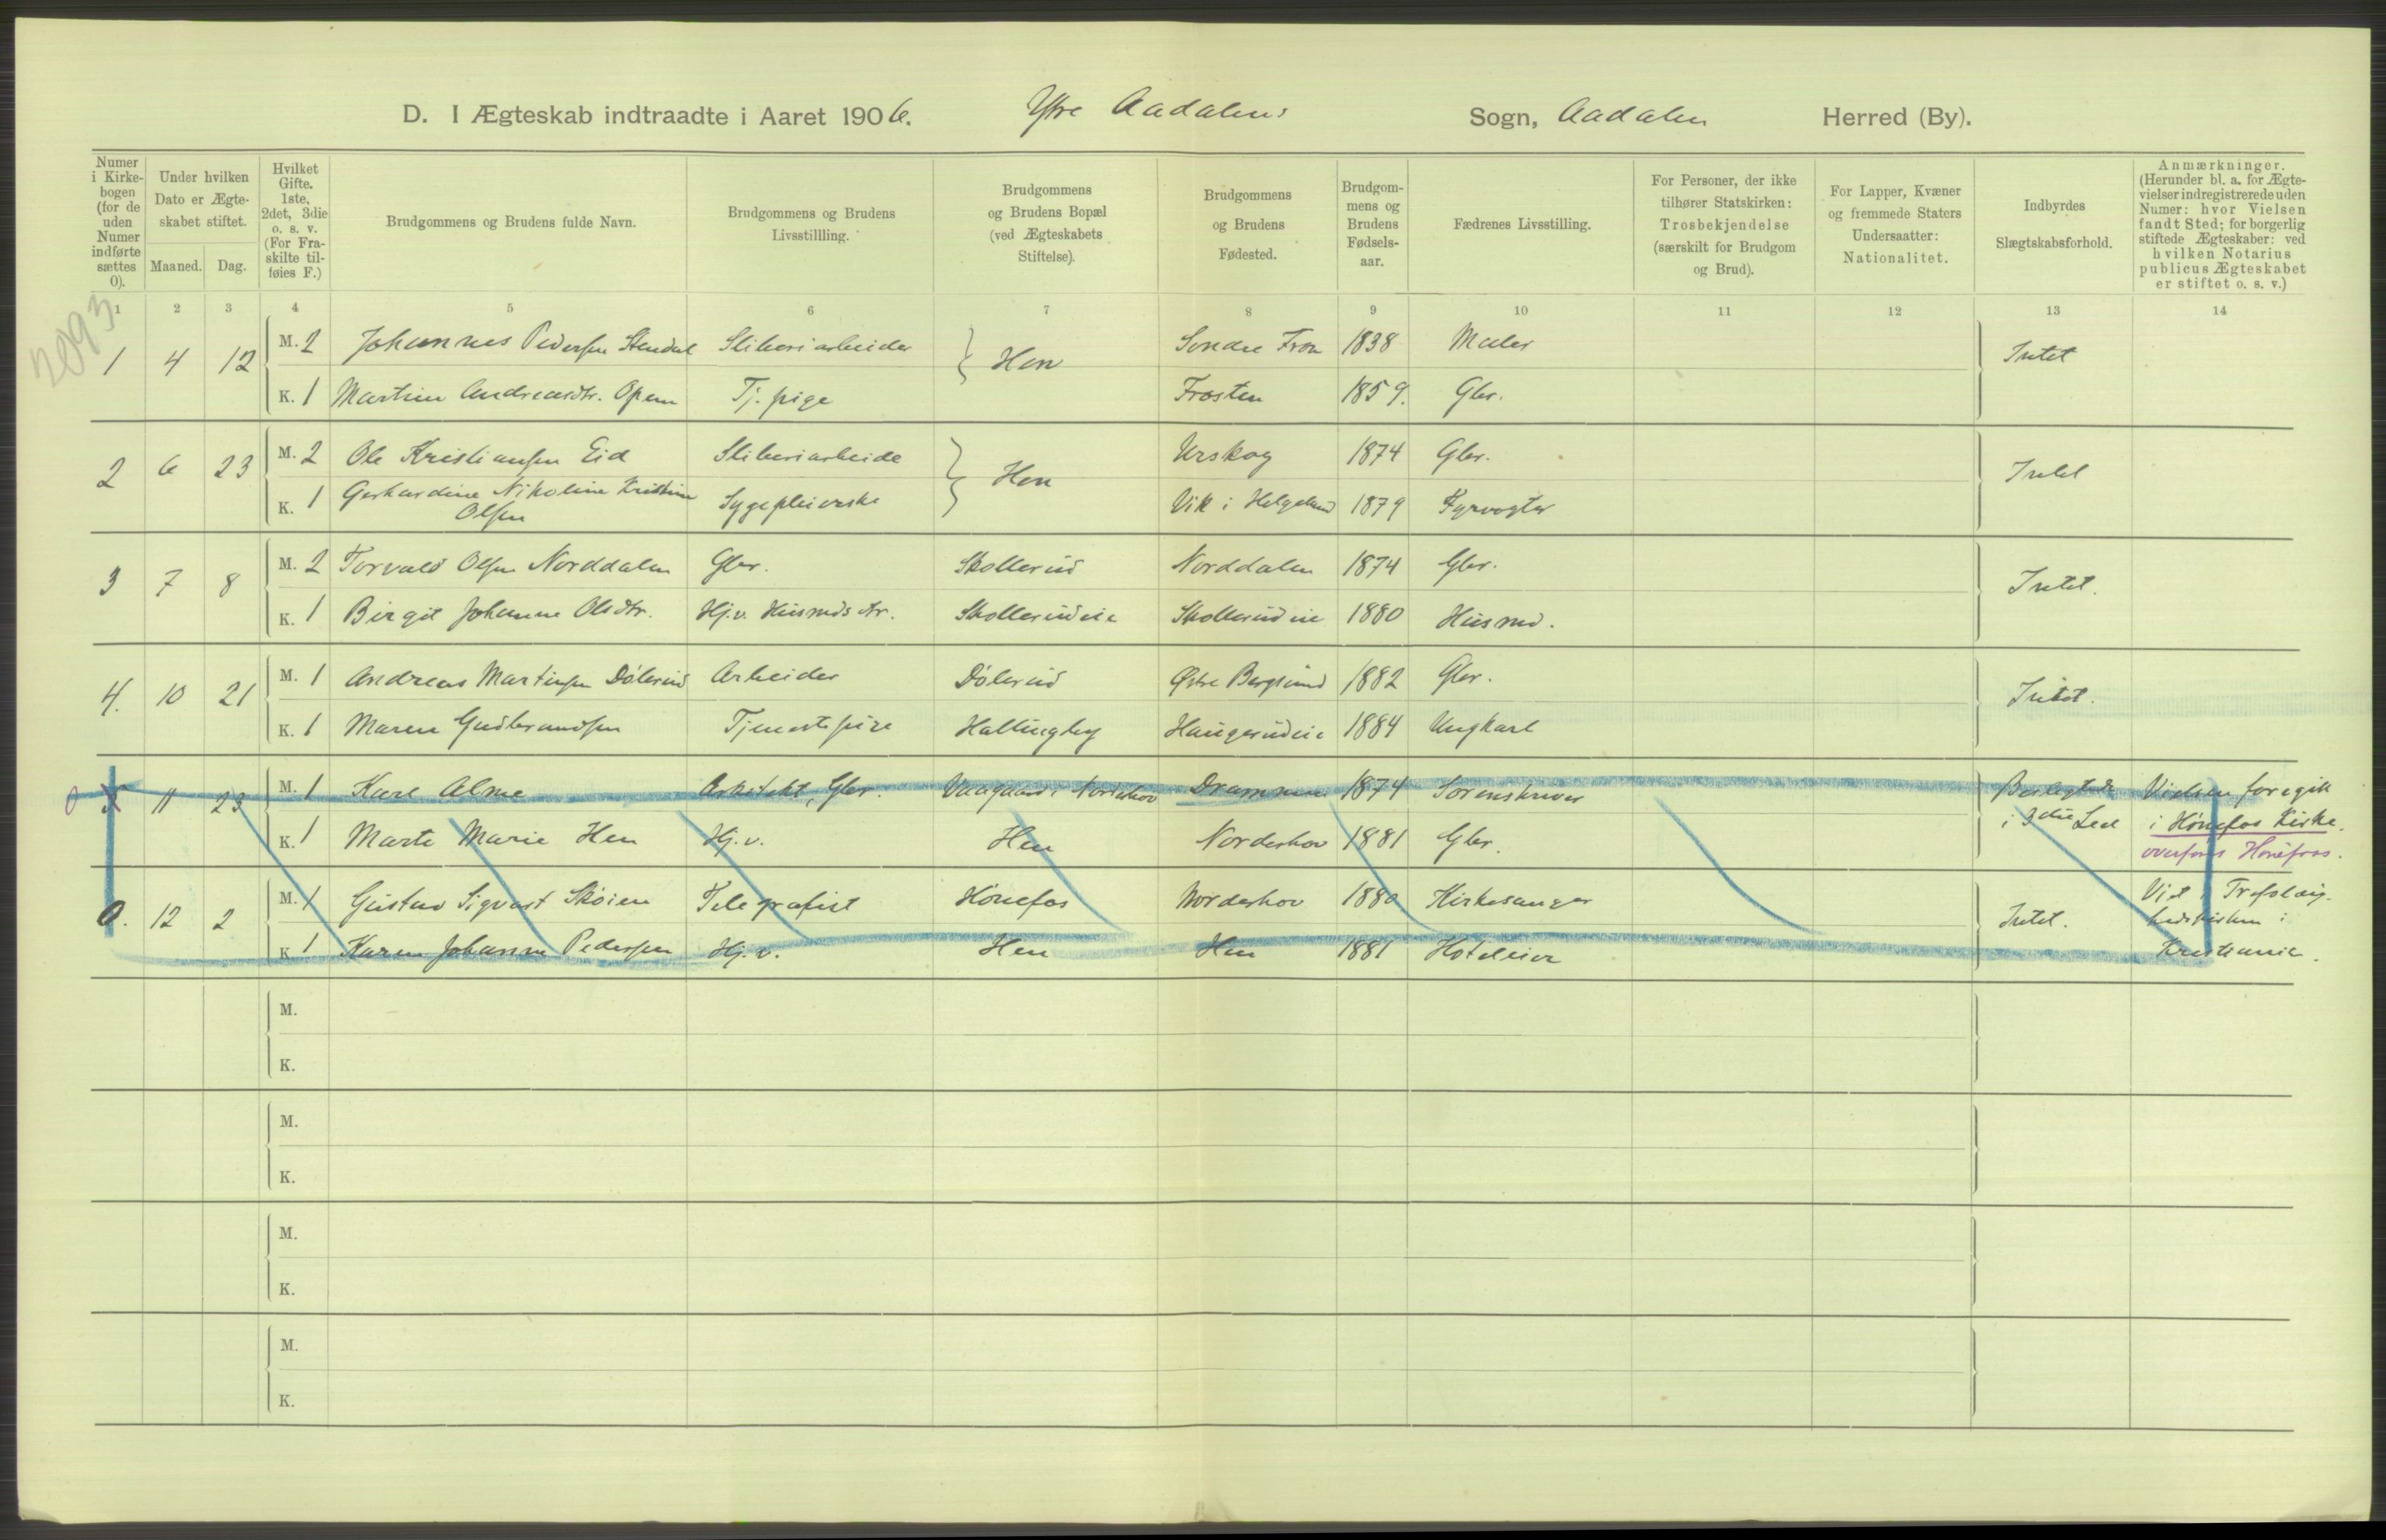 D. I Ægteskab indtraadte i Aaret 1906. Ytre Aadalens Sogn, Aadalen Herred (By).
Numer i Kirkebogen (for de uden Numer indførte sættes 0).
Under hvilken Dato er Ægteskabet stiftet.
Maaned. Dag.
Hvilket Gifte. 1ste, 2det, 3die o. s. v. (For Fraskilte tilføies F.)
Brudgommens og Brudens fulde Navn.
Brudgommens og Brudens Livsstillling.
Brudgommens og Brudens Bopæl (ved Ægteskabets Stiftelse).
Brudgommens og Brudens Fødested.
Brudgommens og Brudens Fødselsaar.
Fædrenes Livsstilling.
For Personer, der ikke tilhører Statskirken: Trosbekjendelse (særskilt for Brudgom og Brud).
For Lapper, Kvæner og fremmede Staters Undersaatter: Nationalitet.
Indbyrdes Slægtskabsforhold.
Anmærkninger. (Herunder bl. a. for Ægtevielser indregistrerede uden Numer: hvor Vielsen fandt Sted; for borgerlig stiftede Ægteskaber: ved hvilken Notarius publicus Ægteskabet er stiftet o. s. v.)
1 2 3 4 5 6 7 8 9 10 11 12 13 14
2093
1 4 12 M. 2 Johannes Pedersen Stendal Sliberiarbeider Hen Søndre Fron 1838 Maler Intet
K. 1 Martine Andreasdtr. Opem Tj. pige Frosten 1859. Gbr.
2 6 23 M. 2 Ole Kristiansen Eid Sliberiarbeide Hen Urskog 1874 Gbr. Intet
K. 1 Gerhardine Nikoline Kristine Olsen Sygepleierske Vik i Helgeland 1879 Fyrvogter
3 7 8 M. 2 Torvald Olsen Norddalen Gbr. Skollerud Norddalen 1874 Gbr. Intet.
K. 1 Birgit Johanne Olsdtr. Hj.v. Husmds dtr. Skollerudeie Skollerudeie 1880 Husmd.
4. 10 21 M. 1 Andreas Martinsen Dølerud Arbeider Dølerud Østre Bergsund 1882 Gbr. Intet.
K. 1 Maren Gudbrandsen Tjenestepige Hallingby Haugerudeie 1884 Ungkarl
0 5 11 23 M. 1 Karl Alme Arkitekt, Gbr. i Norderhov Drammen 1874 Sorenskriver Beslegtede Vielsen foregik
K. 1 Marte Marie Hen Hj.v. Hen Norderhov 1881 Gbr. i 3die Led i Hønefos Kirke.
overføres Hønefoss.
0. 12 2 M. 1 Gustav Sigvart Skøien Telegrafist Hønefos Norderhov 1880 Kirkesanger Intet. Viet i Trefoldig-
hedskirken i
K 1 Karen Johanne Pedersen Hj. v. Hen Hen 1881 Hoteleier Kristiania.
M.
K.
M.
K.
M.
K.
M.
K.